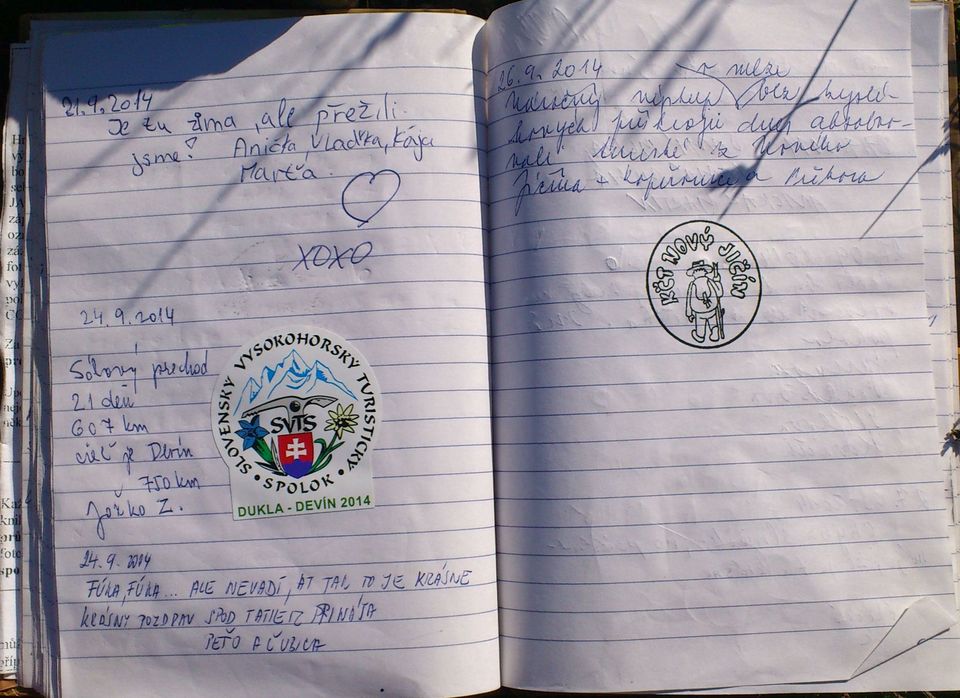 21.9.2014
Je tu zima, ale přežili
jsme! Anička, Vlaďka, Kája
Marťa.
XOXO
24.9.2014
Sólový prechod
21 deň
607 km
cieľ je Devín
750 km
Jožko Z.
SLOVENSKÝ VYSOKOHORSKÝ TURISTICKÝ
SPOLOK
SVTS
DUKLA - DEVÍN 2014
24.9.2014
FÚKA, FÚKA... ALE NEVADÍ, AJ TAK TO JE KRÁSNE
KRÁSNY POZDRAV SPOD TATIER PRINÁŠA
PEŤO A ĽUBICA
26.9.2014 v mlze
Náročný výstup bez
dnes absolvo-
vali z Nového
Jičína + Kopřivnice a Příbora
KČT NOVÝ JIČÍN